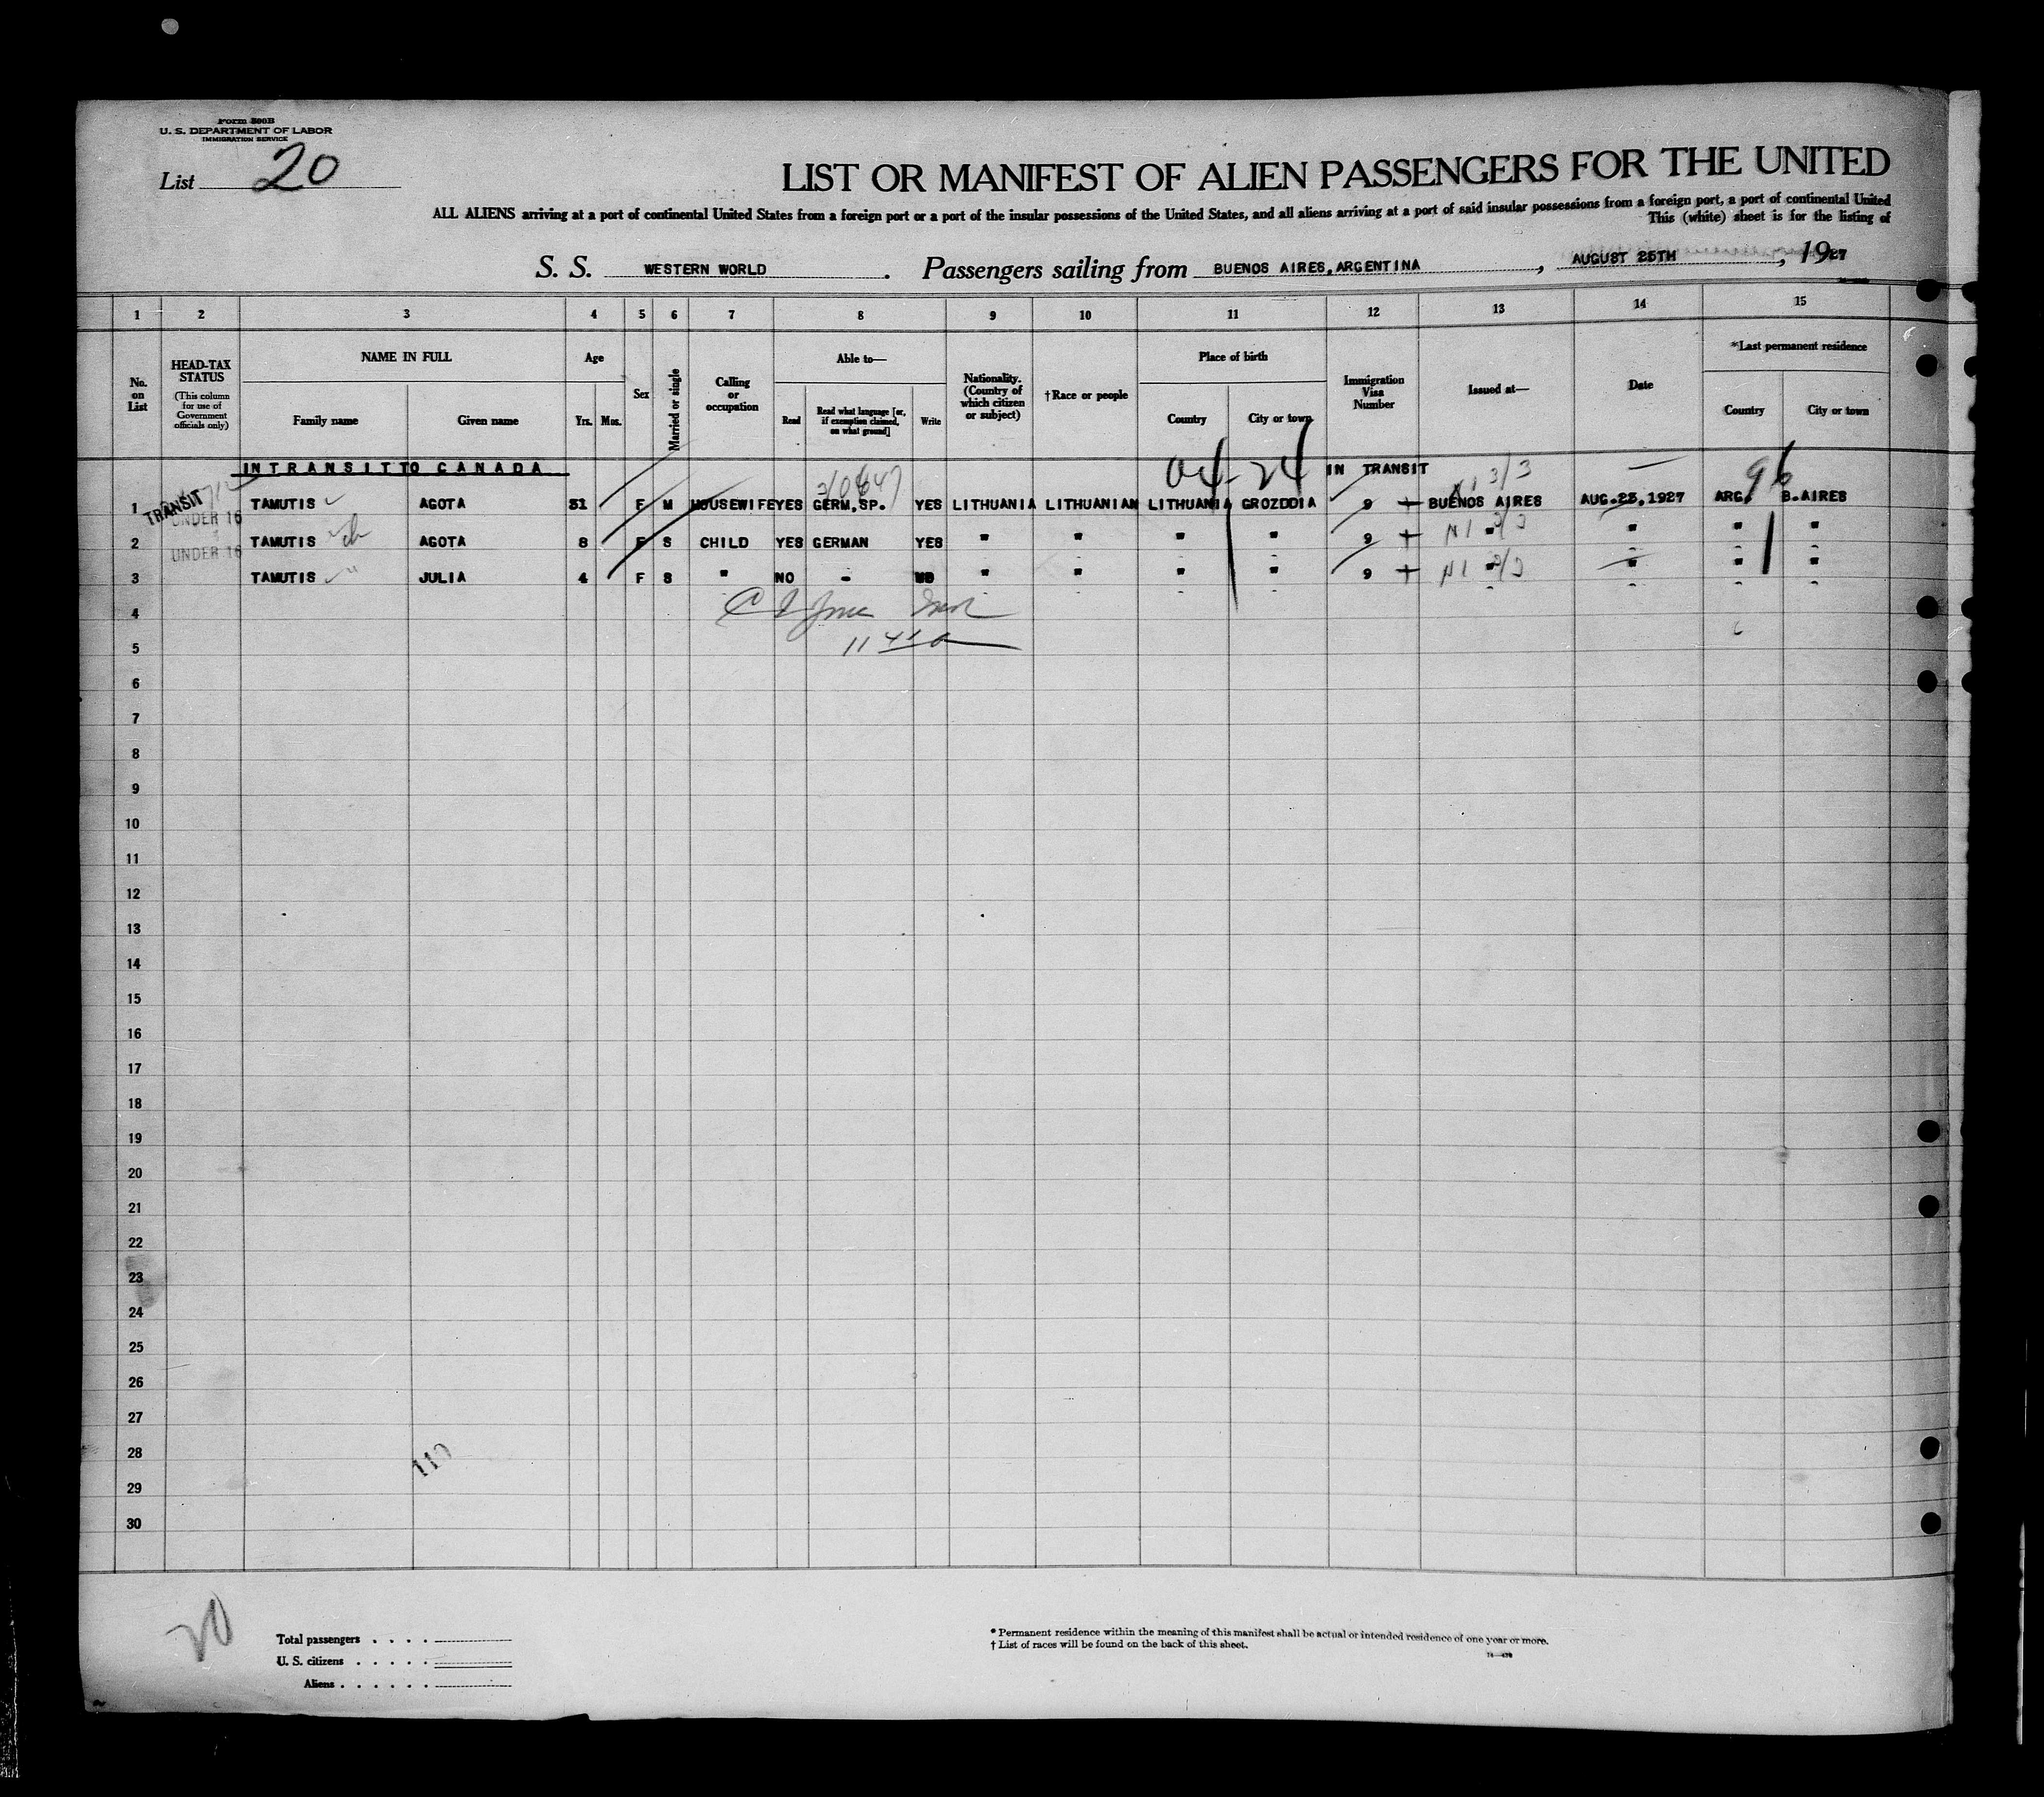 Form 500B
U. S. DEPARTMENT OF LABOR
IMMIGRATION SERVICE
List 20
LIST OR MANIFEST OF ALIEN PASSENGERS FOR THE UNITED
ALL ALIENS arriving at a port of continental United States from a foreign port or a port of the insular possessions of the United States, and all aliens arriving at a port of said insular possessions from a foreign port, a port of continental United
This (white) sheet is for the listing of
S. S. WESTERN WORLD . Passengers sailing from BUENOS AIRES, ARGENTINA , AUGUST 25TH , 1927
1 2 3 4 5 6 7 8 9 10 11 12 13 14 15
No. on List
HEAD-TAX STATUS
(This column for use of Government officials only)
NAME IN FULL
Family name
Given name
Age
Yrs. Mos.
Sex
Married or single
Calling or occupation
Able to—
Read
Read what language [or, if exemption claimed, on what ground]
Write
Nationality. (Country of which citizen or subject)
†Race or people
Place of birth
Country
City or town
Immigration Visa Number
Issued at—
Date
*Last permanent residence
Country
City or town
IN TRANSIT TO CANADA 04-24 IN TRANSIT 3/3 96
1 TRANSIT TAMUTIS AGOTA 31 F M HOUSEWIFE YES GERM,SP. YES LITHUANIA LITHUANIAN LITHUANIA GROZDDIA 9 BUENOS AIRES AUG.23,1927 ARG. B.AIRES
UNDER 16
2 TAMUTIS AGOTA 8 F S CHILD YES GERMAN YES " " " " 9 " " " "
UNDER 16
3 TAMUTIS JULIA 4 F S " NO - NO " " " " 9 " " " "
4
5
6
7
8
9
10
11
12
13
14
15
16
17
18
19
20
21
22
23
24
25
26
27
28
110
29
30
20
Total passengers . . . .
U. S. citizens . . . . .
Aliens . . . . . .
* Permanent residence within the meaning of this manifest shall be actual or intended residence of one year or more.
† List of races will be found on the back of this sheet.